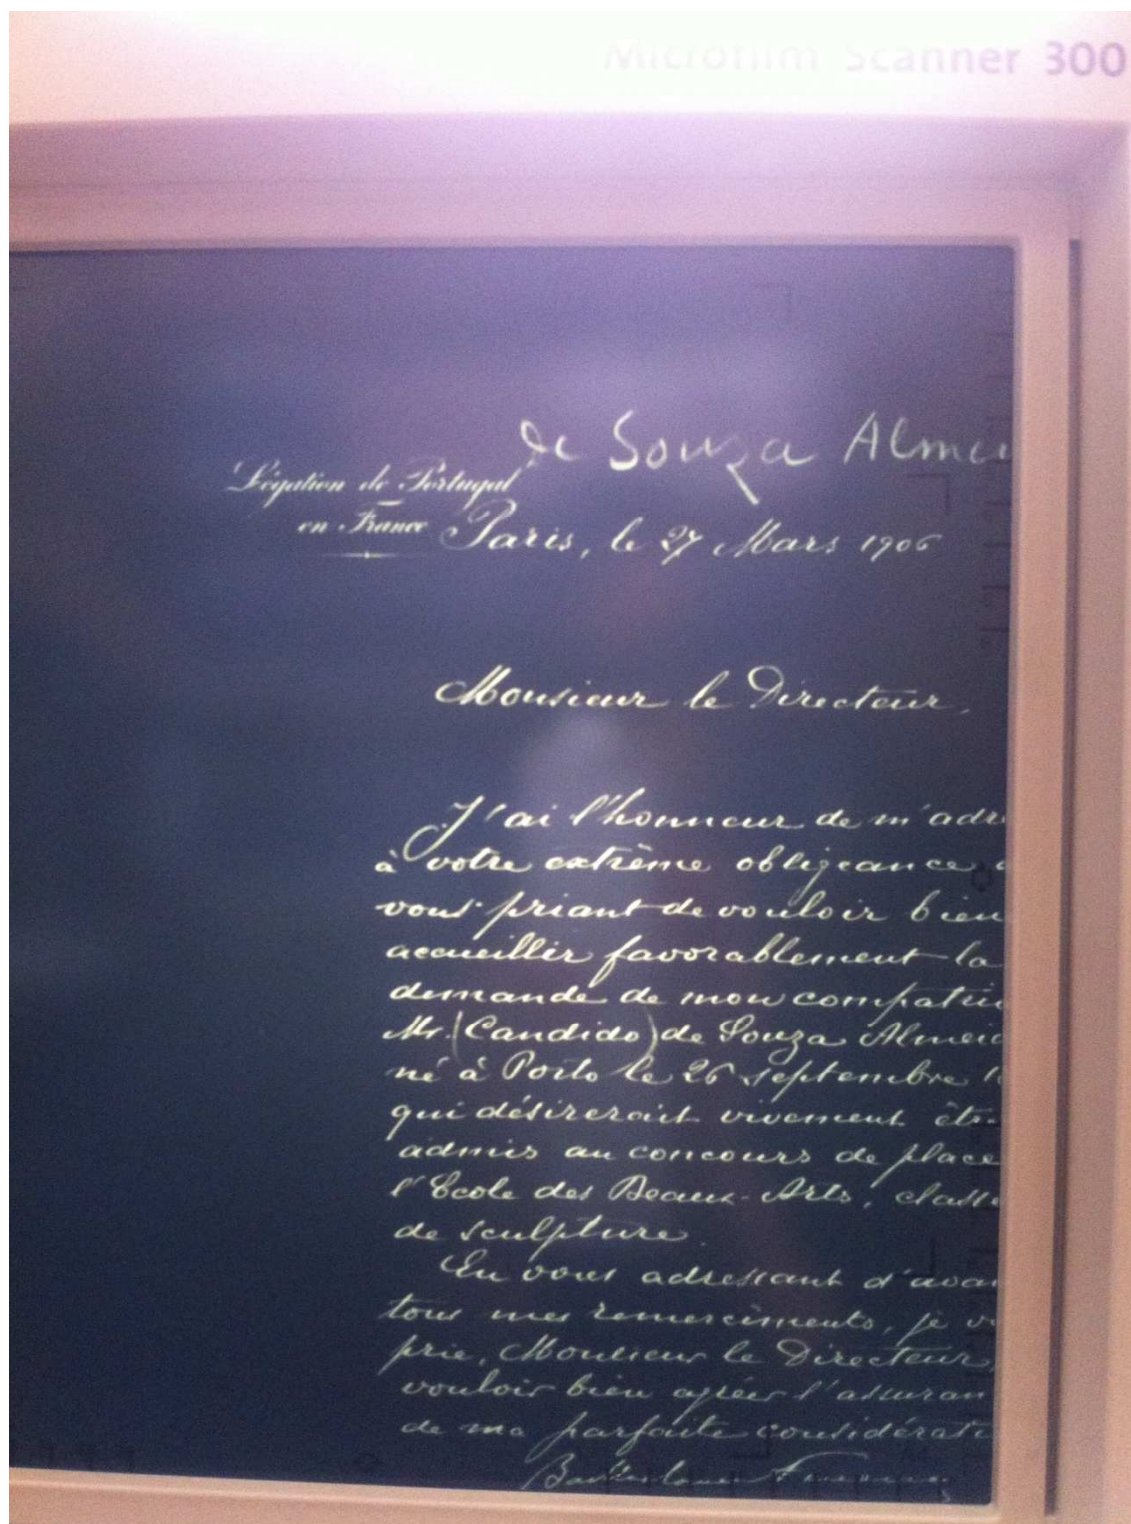 Microfilm Scanner 300
de Souza Almei
Légation de Portugal
en France
Paris, le 27 Mars 1906
Monsieur le Directeur,
J'ai l'honneur de m'adre
à votre extrême obligeance
vous priant de vouloir bien
accueillir favorablement la
demande de mon compatrio
Mr. (Candido) de Souza Almeid
né à Porto le 26 septembre 1
qui désirerait vivement êtr
admis au concours de place
l'Ecole des Beaux-Arts, classe
de sculpture.
En vous adressant d'avan
tous mes remerciments, je v
prie, Monsieur le Directeur,
vouloir bien agréer l'assuran
de ma parfaite considérati